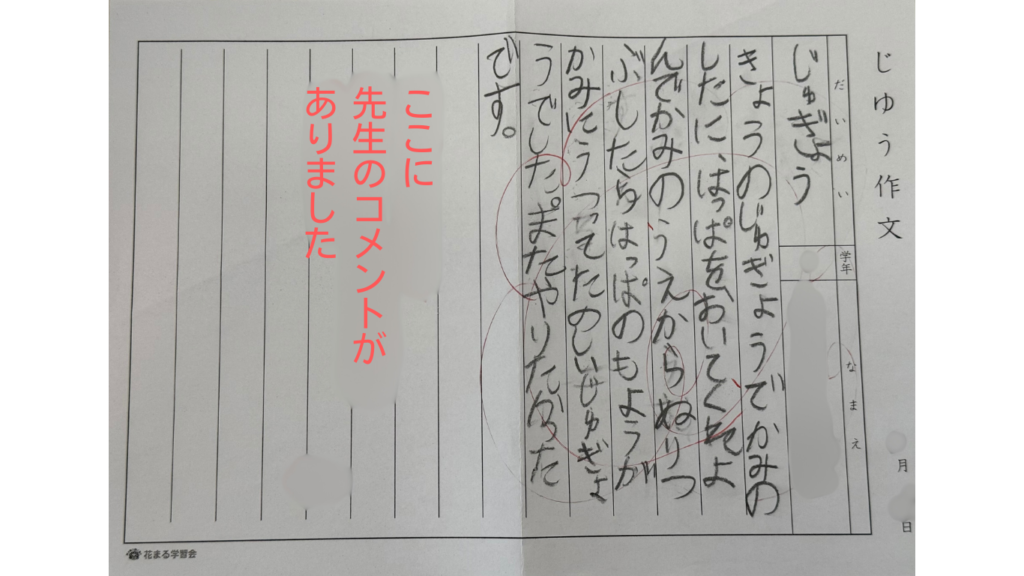 じゆう作文
月 日
だいめい
学年
なまえ
じゅぎょう
きょうのじゅぎょうでかみの
したに、はっぱをおいてくれよ
んでかみのうえからぬりつ
ぶしたらはっぱのもようが
かみにうつってたのしいじゅぎょ
うでした。またやりたかった
です。
ここに
先生のコメントが
ありました
花まる学習会